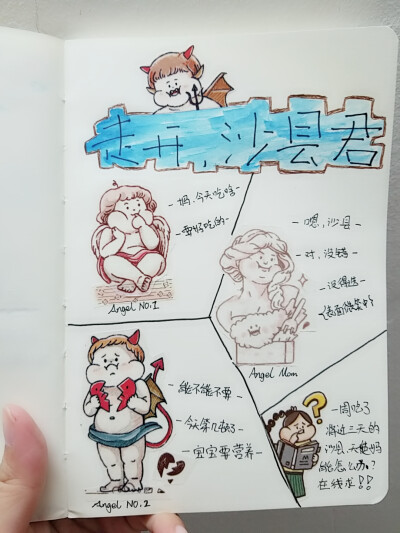 走开，沙县君
- 妈，今天吃啥
- 要好吃的-
Angel NO.1
- 嗯，沙县
- 对，没错
- 没得选
Angel Mom
- 能不能不要
- 今天第几顿了
- 宝宝要营养-
Angel NO.2
- 一周吃了
将近三天的
沙县，天使妈
能怎么办？
在线求！！